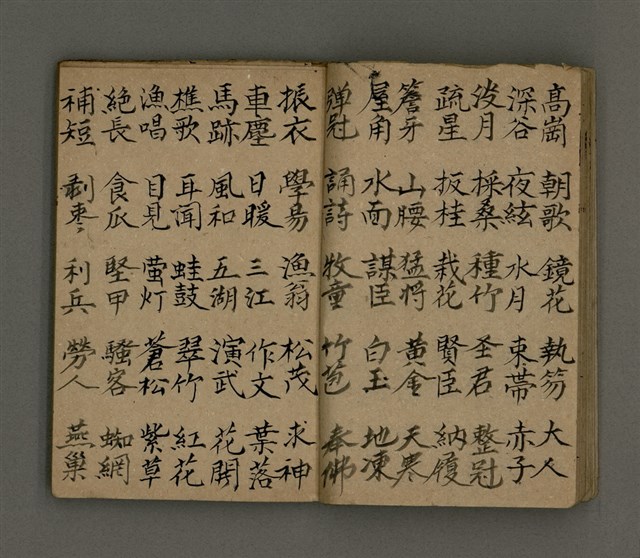 高崗 朝歌 鏡花 執笏 大人
深谷 夜絃 水月 束帯 赤子
淡月 採桑 種竹 圣君 整冠
疏星 扳桂 栽花 賢臣 納履
簷牙 山腰 猛将 黄金 天寒
屋角 水面 謀臣 白玉 地凍
弹冠 誦詩 牧童 竹苞 奉佛
振衣 學易 漁翁 松茂 求神
車塵 日暖 三江 作文 葉落
馬跡 風和 五湖 演武 花開
樵歌 耳聞 蛙鼓 翠竹 紅花
漁唱 目見 萤灯 蒼松 紫草
絕長 食瓜 堅甲 騷客 蜘網
補短 剥枣 利兵 勞人 燕巢